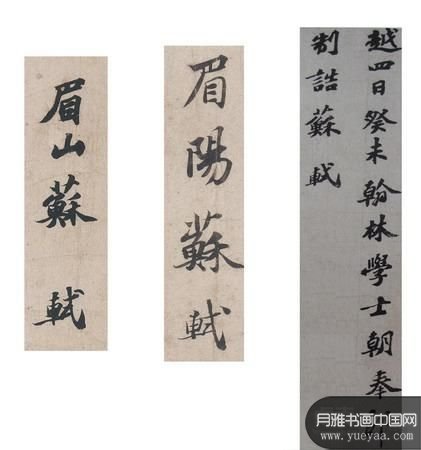 眉山蘇軾
眉陽蘇軾
越四日癸未翰林學士朝奉郎
制誥蘇軾
月雅书画中国网
www.yueyaa.com